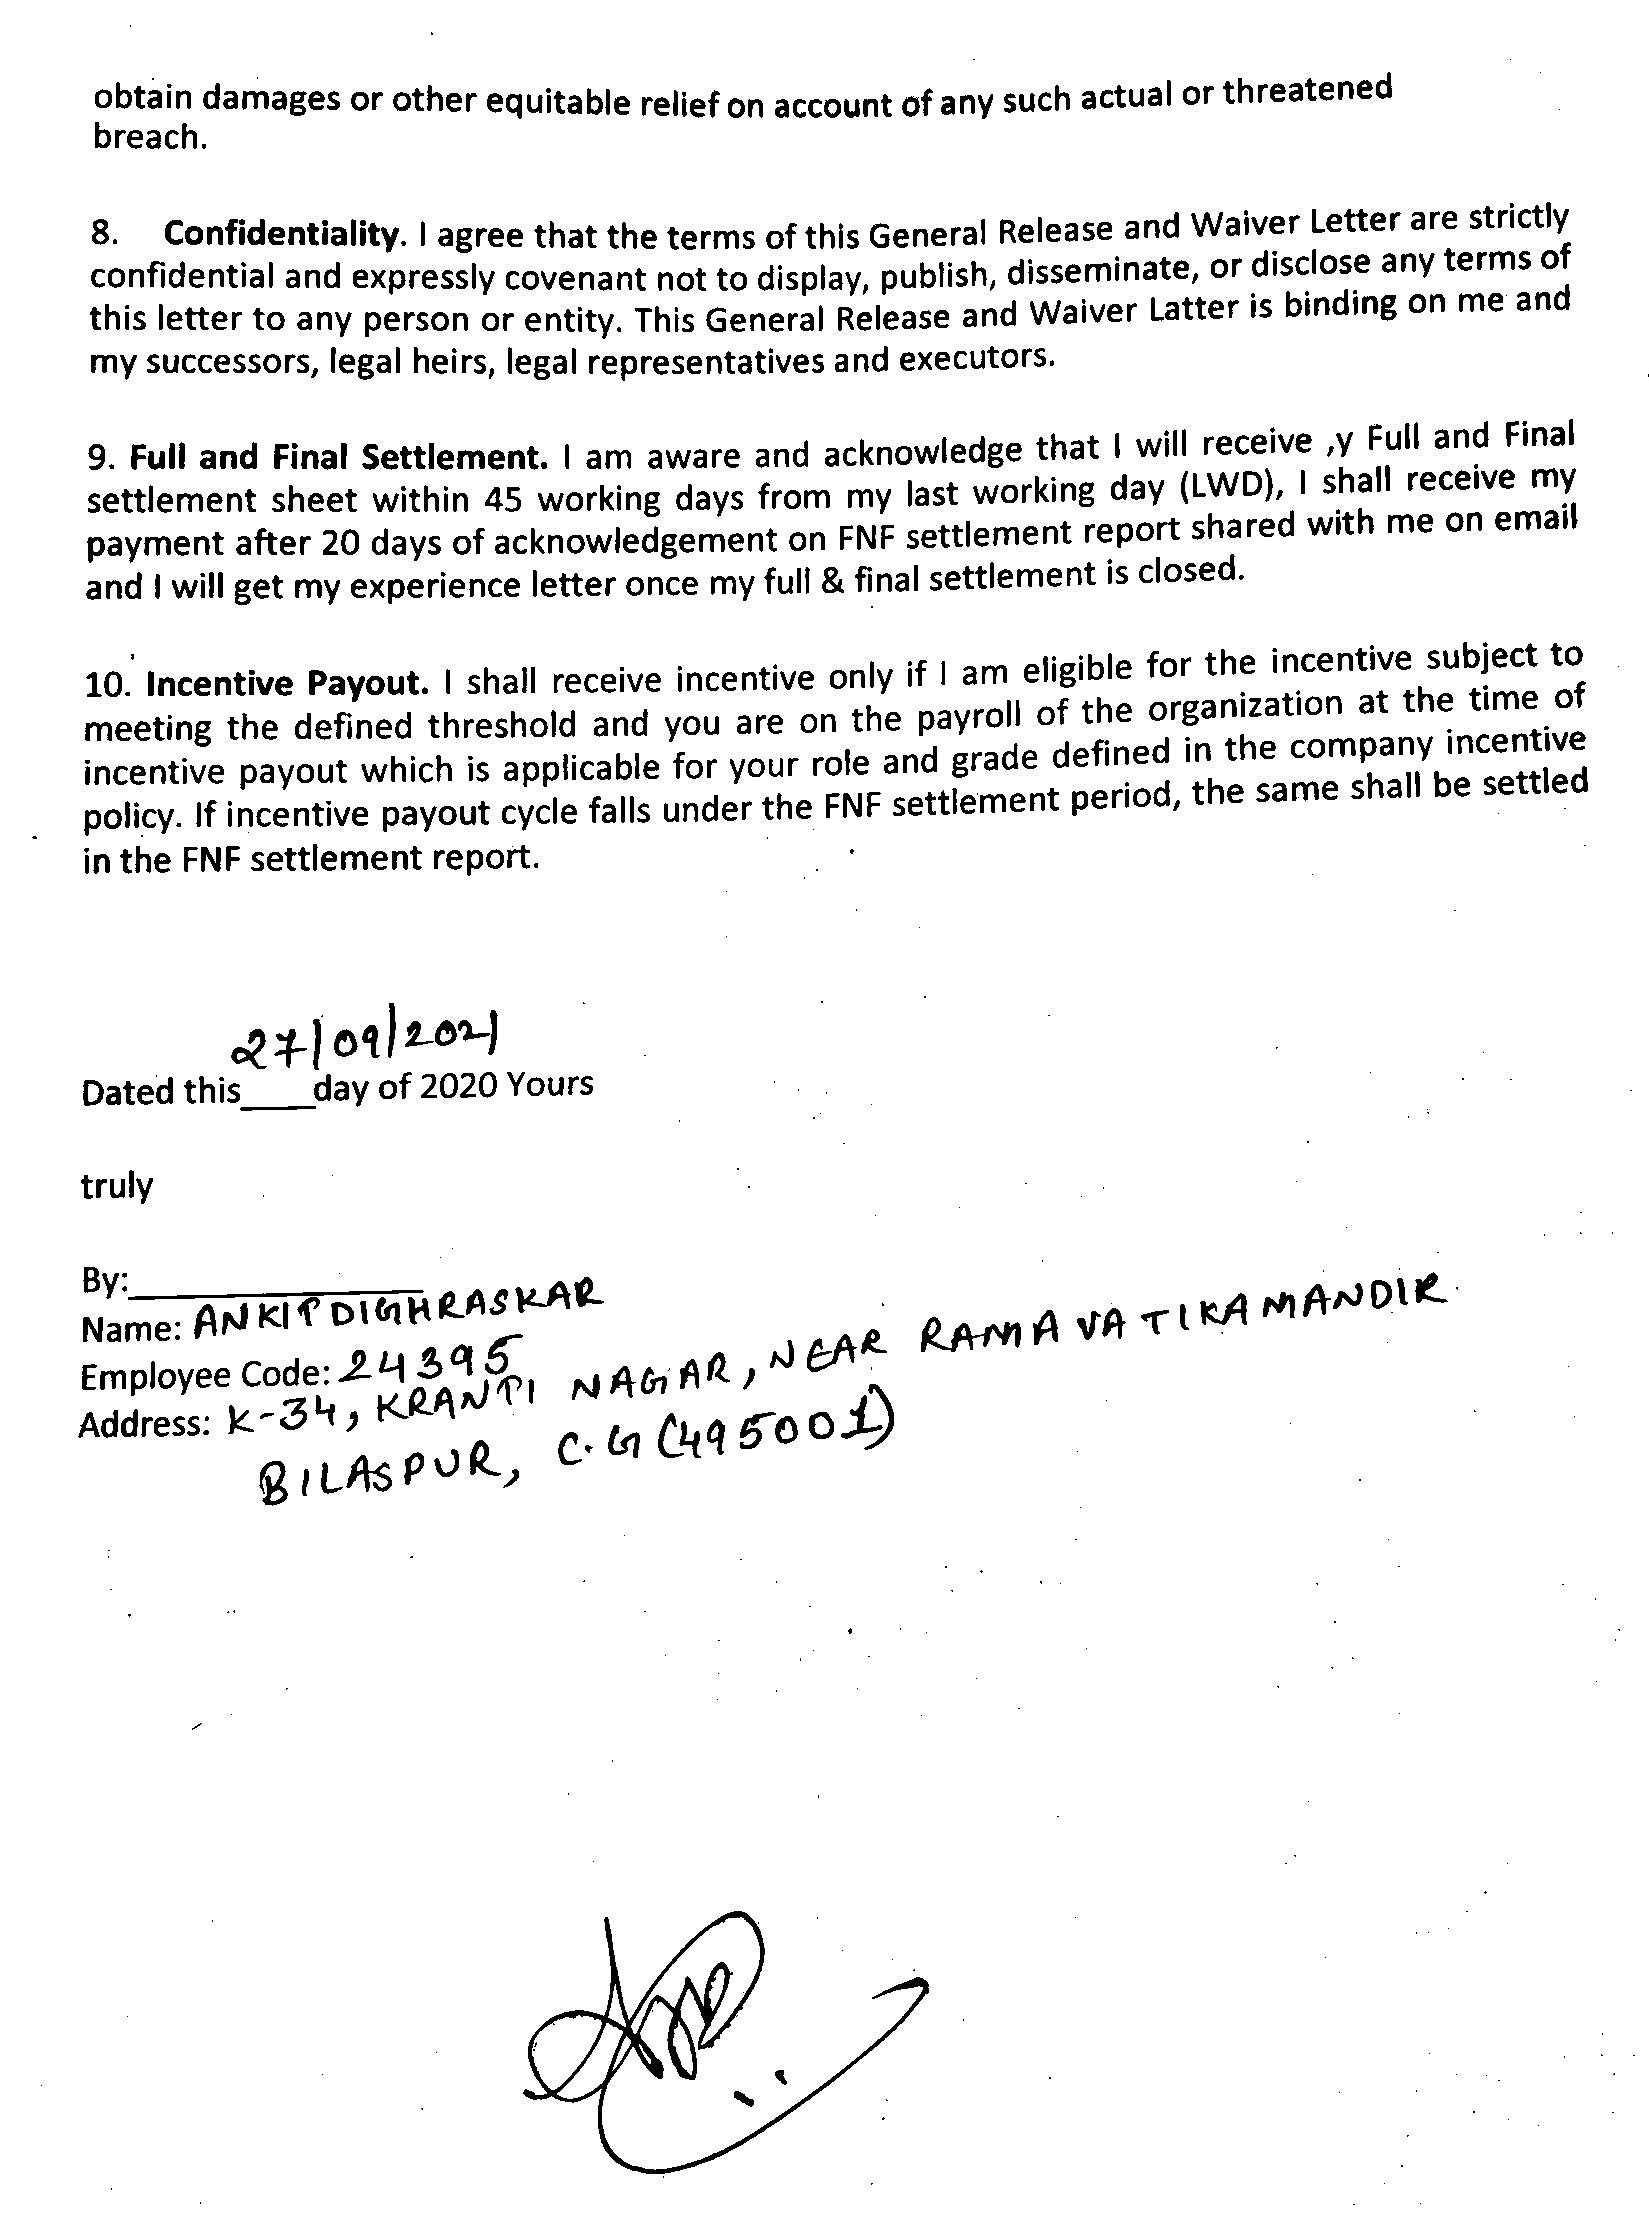 obtain damages or other equitable relief on account of any such actual or threatened
breach.
8. Confidentiality. I agree that the terms of this General Release and Waiver Letter are strictly
confidential and expressly covenant not to display, publish, disseminate, or disclose any terms of
this letter to any person or entity. This General Release and Waiver Latter is binding on me and
my successors, legal heirs, legal representatives and executors.
9. Full and Final Settlement. I am aware and acknowledge that I will receive ,y Full and Final
settlement sheet within 45 working days from my last working day (LWD), I shall receive my
payment after 20 days of acknowledgement on FNF settlement report shared with me on email
and I will get my experience letter once my full & final settlement is closed.
10. Incentive Payout. I shall receive incentive only if I am eligible for the incentive subject to
meeting the defined threshold and you are on the payroll of the organization at the time of
incentive payout which is applicable for your role and grade defined in the company incentive
policy. If incentive payout cycle falls under the FNF settlement period, the same shall be settled
in the FNF settlement report.
27/09/2021
Dated this____day of 2020 Yours
truly
By:________________
Name: ANKIT DIGHRASKAR
Employee Code: 24395
Address: K-34, KRANTI NAGAR, NEAR RAMA VATIKA MANDIR
BILASPUR, C.G (495001)